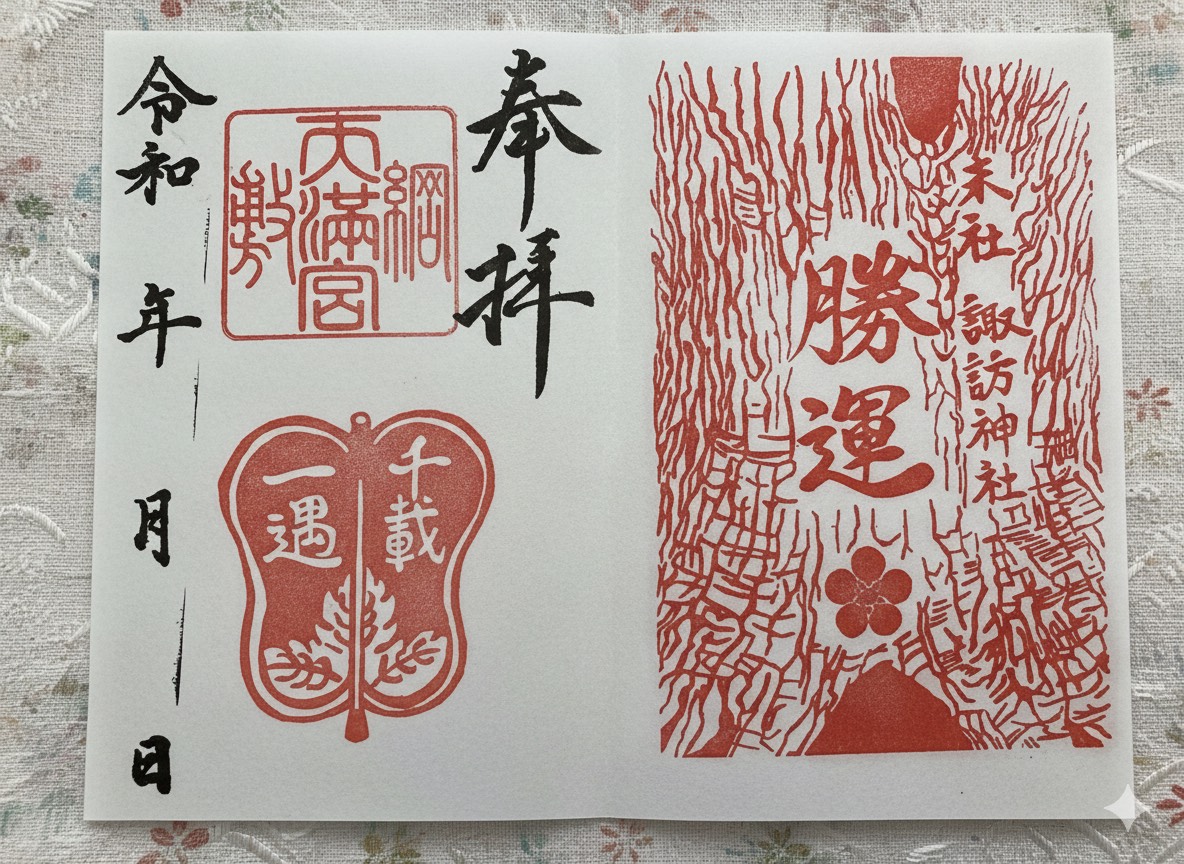 末社 諏訪神社
勝運
奉拝
綱
天滿宮
敷
千載
一遇
令和 年 月 日